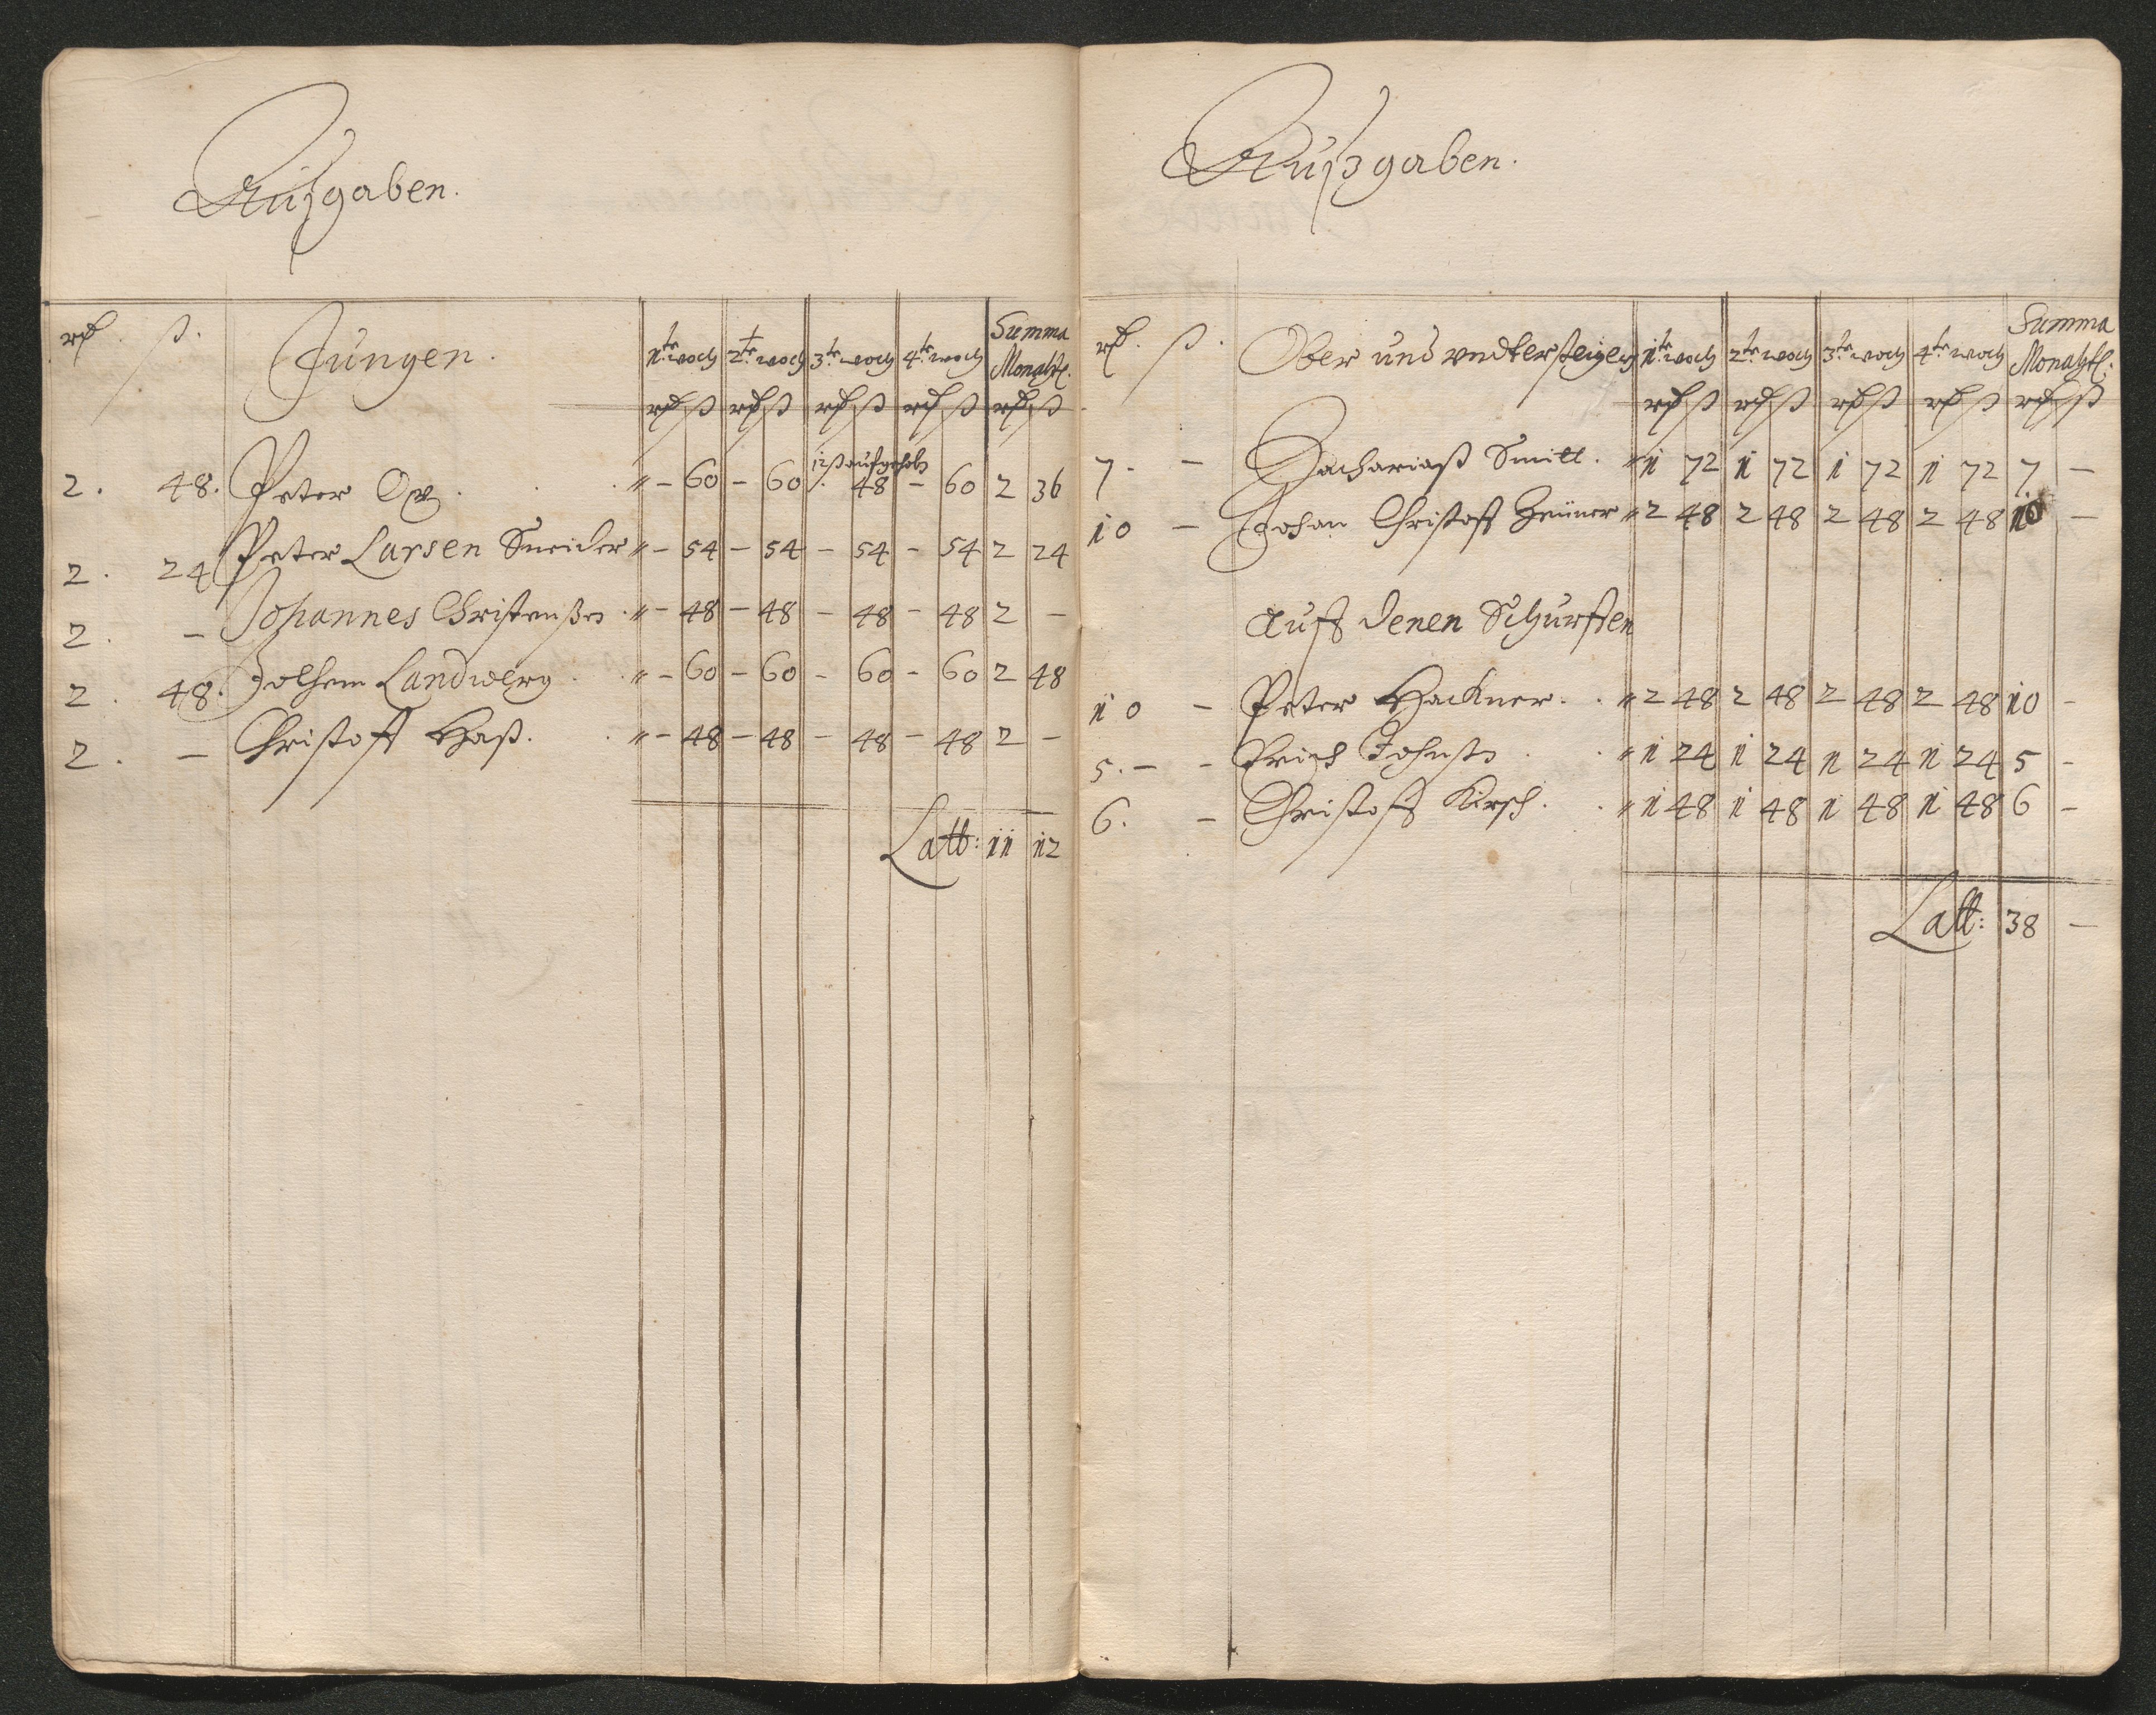 Außgaben.
rß. ß. Jungen. 1te. woch 2te. woch 3te. woch 4te. woch Summa Monahtl.
rß ß rß ß rß ß rß ß rß ß
12 ß aufgehob
2. 48. Peter Ox . . . " - 60 - 60 - 48 - 60 2 36
2. 24 Peter Larsen Sneider " - 54 - 54 - 54 - 54 2 24
2. - Johannes Christenßen . " - 48 - 48 - 48 - 48 2 -
2. 48. Landwerg . . " - 60 - 60 - 60 - 60 2 48
2. - Christoff Haß. . " - 48 - 48 - 48 - 48 2 -
Latt: 11 12
Außgaben.
rß. ß. Ober und vndtersteiger 1te. woch 2te. woch 3te. woch 4te. woch Summa Monahtl:
rß ß rß ß rß ß rß ß rß ß
7. - Zachariaß Smitt. " 1 72 1 72 1 72 1 72 7 -
10 - Johan Christoff " 2 48 2 48 2 48 2 48 10 -
auff denen Schurffen
10 - Peter Hackner. . " 2 48 2 48 2 48 2 48 10 -
5. - - Erich Johnßen . . " 1 24 1 24 1 24 1 24 5 -
6. - Christoff Kirsch. . " 1 48 1 48 1 48 1 48 6 -
Latt: 38 -